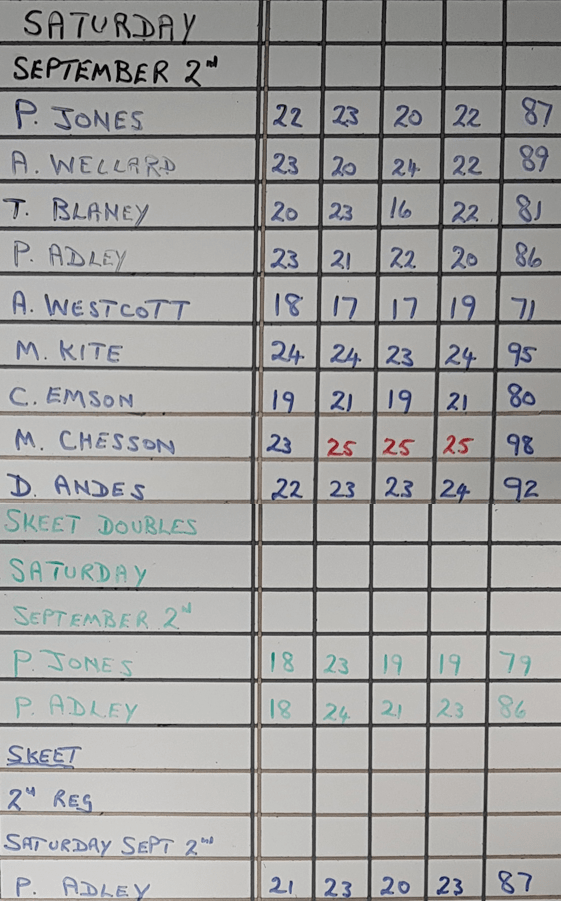 SATURDAY
SEPTEMBER 2nd
P. JONES 22 23 20 22 87
A. WELLARD 23 20 24 22 89
T. BLANEY 20 23 16 22 81
P. ADLEY 23 21 22 20 86
A. WESTCOTT 18 17 17 19 71
M. KITE 24 24 23 24 95
C. EMSON 19 21 19 21 80
M. CHESSON 23 25 25 25 98
D. ANDES 22 23 23 24 92
SKEET DOUBLES
SATURDAY
SEPTEMBER 2nd
P. JONES 18 23 19 19 79
P. ADLEY 18 24 21 23 86
SKEET
2nd REG
SATURDAY SEPT 2nd
P. ADLEY 21 23 20 23 87